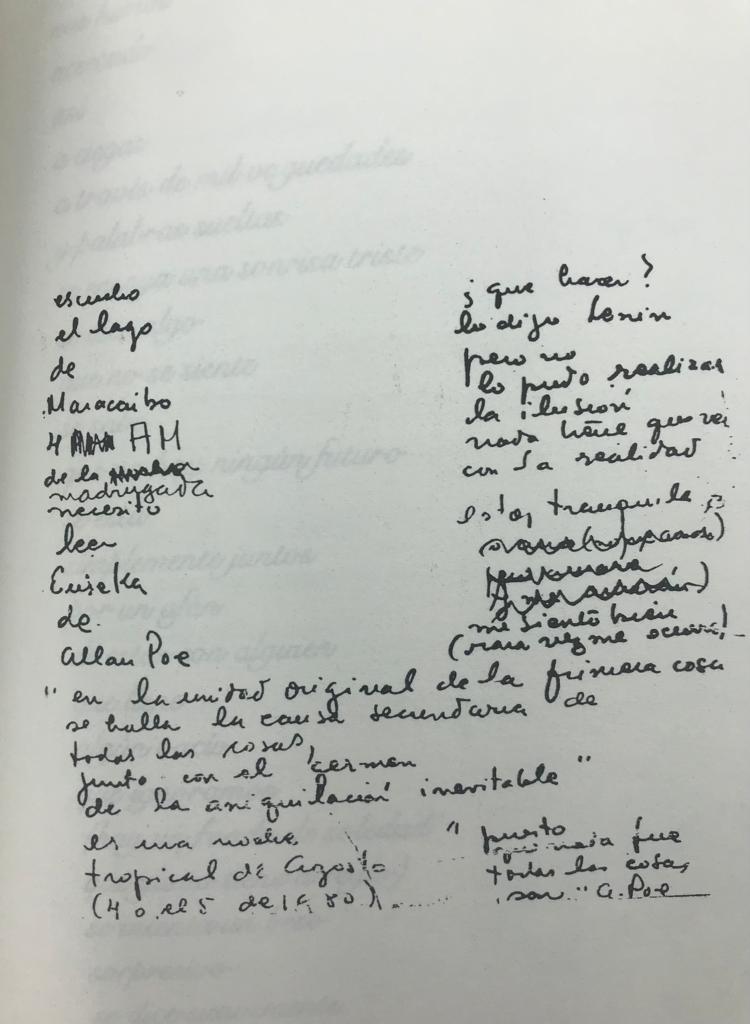 escucho
el lago
de
Maracaibo
4 AM
de la
madrugada
necesito
leer
Eureka
de
Allan Poe
¿que hacer?
lo dijo Lenin
pero no
lo pudo realizar
la ilusión
nada tiene que ver
con la realidad
estoy tranquila
me siento bien
(rara vez me ocurre)
" en la unidad original de la primera cosa
se halla la causa secundaria de
todas las cosas,
junto con el germen
de la aniquilación inevitable "
es una noche
tropical de Agosto
(4 o el 5 de 1980)
" puesto
que
todas las cosas
son " A. Poe